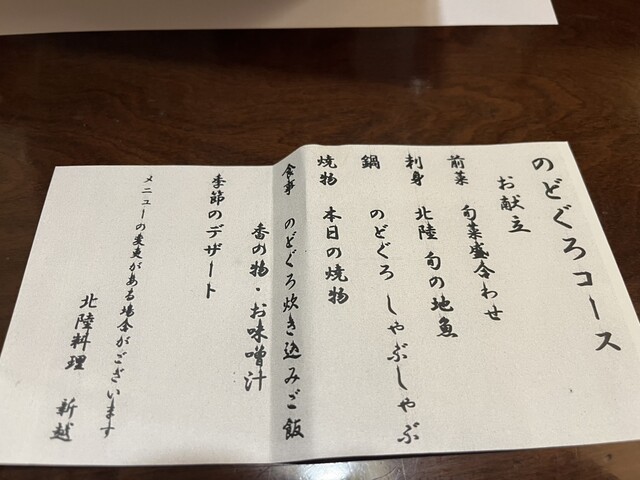 のどぐろコース
お献立
前菜 旬菜盛合わせ
刺身 北陸 旬の地魚
鍋 のどぐろ しゃぶしゃぶ
焼物 本日の焼物
食事 のどぐろ炊き込みご飯
香の物・お味噌汁
季節のデザート
メニューの変更がある場合がございます
北陸料理 新越